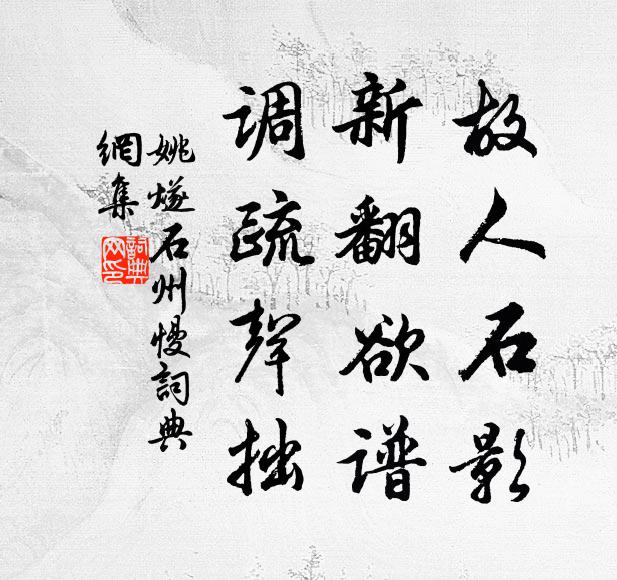 故人石影
新翻欲谱
调疏聲拙
姚燧石州慢詞典
網集
詞典
网印